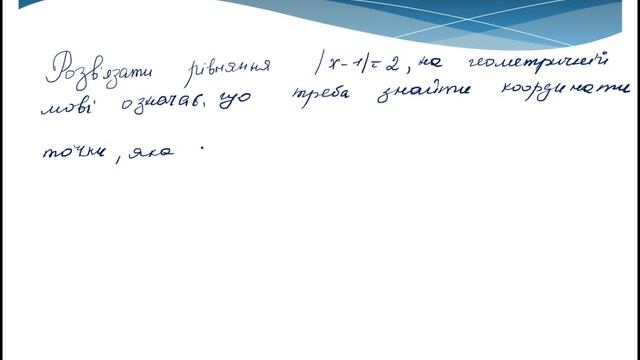 Розв'язати рівняння |x-1|=2, на геометричній
мові означає, що треба знайти координати
точки, яка